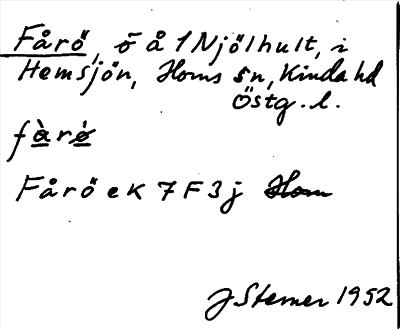 Fårö, ö å 1 Njölhult, i
Hemsjön, Horns sn, Kinda hd
Östg. l.
fàrö́
Fårö ek 7F3j Horn
J Sterner 1952